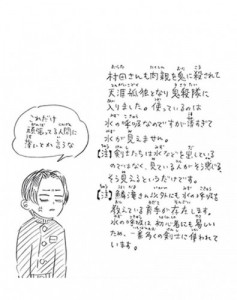 村田さんも肉親を鬼に殺されて
天涯孤独となり鬼殺隊に
入りました。使っているのは
水の呼吸なのですが薄すぎて
水が見えません。
【注】剣士たちは水などを出している
のではなく、見ている人がそう思う
そう見えるというだけです。
【注】鱗滝さん以外にも水の呼吸を
教えている育手が存在します。
水の呼吸は初心者にも易しい
ため、一番多くの剣士に使われて
います。
これだけ
頑張ってる人間に
薄いとか言うな